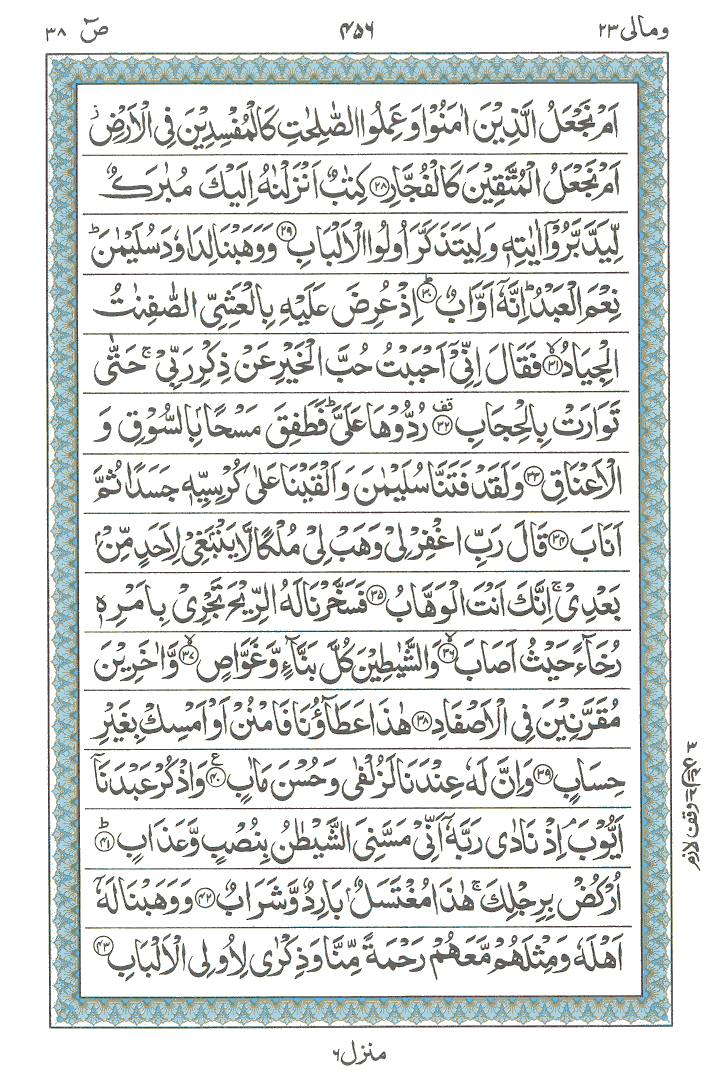 ومالى ٢٣ ۴۵۶ صٓ ٣٨
اَمْ نَجْعَلُ الَّذِيْنَ اٰمَنُوْا وَعَمِلُوا الصّٰلِحٰتِ كَالْمُفْسِدِيْنَ فِى الْاَرْضِ ز
اَمْ نَجْعَلُ الْمُتَّقِيْنَ كَالْفُجَّارِ ﴿٢٨﴾ كِتٰبٌ اَنْزَلْنٰهُ اِلَيْكَ مُبٰرَكٌ
لِّيَدَّبَّرُوْۤا اٰيٰتِهٖ وَلِيَتَذَكَّرَ اُولُوا الْاَلْبَابِ ﴿٢٩﴾ وَوَهَبْنَا لِدَاوٗدَ سُلَيْمٰنَ ؕ
نِعْمَ الْعَبْدُ ؕ اِنَّهٗۤ اَوَّابٌ ﴿٣٠﴾ؕ اِذْ عُرِضَ عَلَيْهِ بِالْعَشِىِّ الصّٰفِنٰتُ
الْجِيَادُ ﴿٣١﴾ۙ فَقَالَ اِنِّىْۤ اَحْبَبْتُ حُبَّ الْخَيْرِ عَنْ ذِكْرِ رَبِّىْ ۚ حَتّٰى
تَوَارَتْ بِالْحِجَابِ ﴿٣٢﴾ قف رُدُّوْهَا عَلَىَّ ؕ فَطَفِقَ مَسْحًۢا بِالسُّوْقِ وَ
الْاَعْنَاقِ ﴿٣٣﴾ وَلَقَدْ فَتَنَّا سُلَيْمٰنَ وَاَلْقَيْنَا عَلٰى كُرْسِيِّهٖ جَسَدًا ثُمَّ
اَنَابَ ﴿٣٤﴾ قَالَ رَبِّ اغْفِرْ لِىْ وَهَبْ لِىْ مُلْكًا لَّا يَنْۢبَغِىْ لِاَحَدٍ مِّنْۢ
بَعْدِىْ ۚ اِنَّكَ اَنْتَ الْوَهَّابُ ﴿٣٥﴾ فَسَخَّرْنَا لَهُ الرِّيْحَ تَجْرِىْ بِاَمْرِهٖ
رُخَآءً حَيْثُ اَصَابَ ﴿٣٦﴾ۙ وَالشَّيٰطِيْنَ كُلَّ بَنَّآءٍ وَّغَوَّاصٍ ﴿٣٧﴾ۙ وَّاٰخَرِيْنَ
مُقَرَّنِيْنَ فِى الْاَصْفَادِ ﴿٣٨﴾ هٰذَا عَطَآؤُنَا فَامْنُنْ اَوْ اَمْسِكْ بِغَيْرِ
حِسَابٍ ﴿٣٩﴾ وَاِنَّ لَهٗ عِنْدَنَا لَزُلْفٰى وَحُسْنَ مَاٰبٍ ﴿٤٠﴾ ع وَاذْكُرْ عَبْدَنَاۤ
اَيُّوْبَ ۘ اِذْ نَادٰى رَبَّهٗۤ اَنِّىْ مَسَّنِىَ الشَّيْطٰنُ بِنُصْبٍ وَّعَذَابٍ ﴿٤١﴾ؕ
اُرْكُضْ بِرِجْلِكَ ۚ هٰذَا مُغْتَسَلٌۢ بَارِدٌ وَّشَرَابٌ ﴿٤٢﴾ وَوَهَبْنَا لَهٗۤ
اَهْلَهٗ وَمِثْلَهُمْ مَّعَهُمْ رَحْمَةً مِّنَّا وَذِكْرٰى لِاُولِى الْاَلْبَابِ ﴿٤٣﴾
وقف لازم
منزل ٦